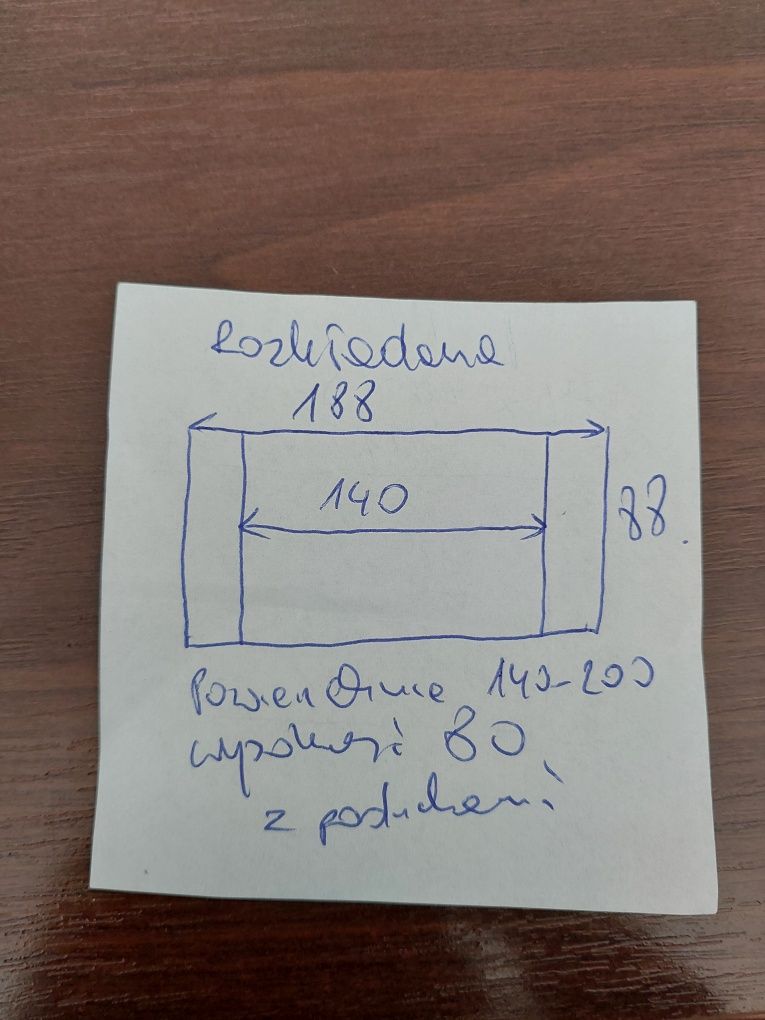 Rozkładana
188
140
88.
Powierzchnia 140-200
wysokość 80
z poduchami